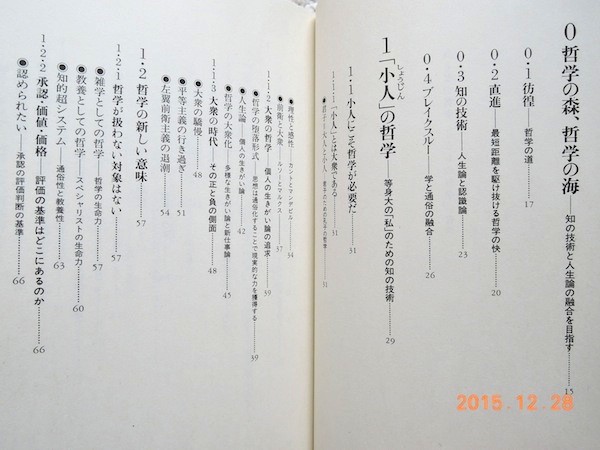 0 哲学の森、哲学の海——知の技術と人生論の融合を目指す……15
0・1 彷徨——哲学の道……17
0・2 直進——最短距離を駆け抜ける哲学の快……20
0・3 知の技術——人生論と認識論……23
0・4 ブレイクスルー——学と通俗の融合……26
1 「小人」の哲学——等身大の「私」のための知の技術……29
しょうじん
1・1 小人にこそ哲学が必要だ……31
1・1・1 「小人」とは大衆である……31
31
●理性と感性——カントとマンデビル……34
●前衛と大衆——ルソーとマルクス……37
1・1・2 大衆の哲学——個人の生きがい論の追求……39
●哲学の堕落形式——思想は通俗化することで現実的な力を獲得する……39
●人生論——個人の生きがい論……42
●哲学の大衆化——多様な生きがい論と新仕事論……45
1・1・3 大衆の時代——その正と負の側面……48
●大衆の驕慢……48
●平等主義の行き過ぎ……51
●左翼前衛主義の退潮……54
1・2 哲学の新しい意味……57
1・2・1 哲学が扱わない対象はない……57
●雑学としての哲学——哲学の生命力……57
●教養としての哲学——スペシャリストの生命力……60
●知的超システム——通俗性と教養性……63
1・2・2 承認・価値・価格——評価の基準はどこにあるのか……66
●認められたい——承認の評価判断の基準……66
2015.12.28